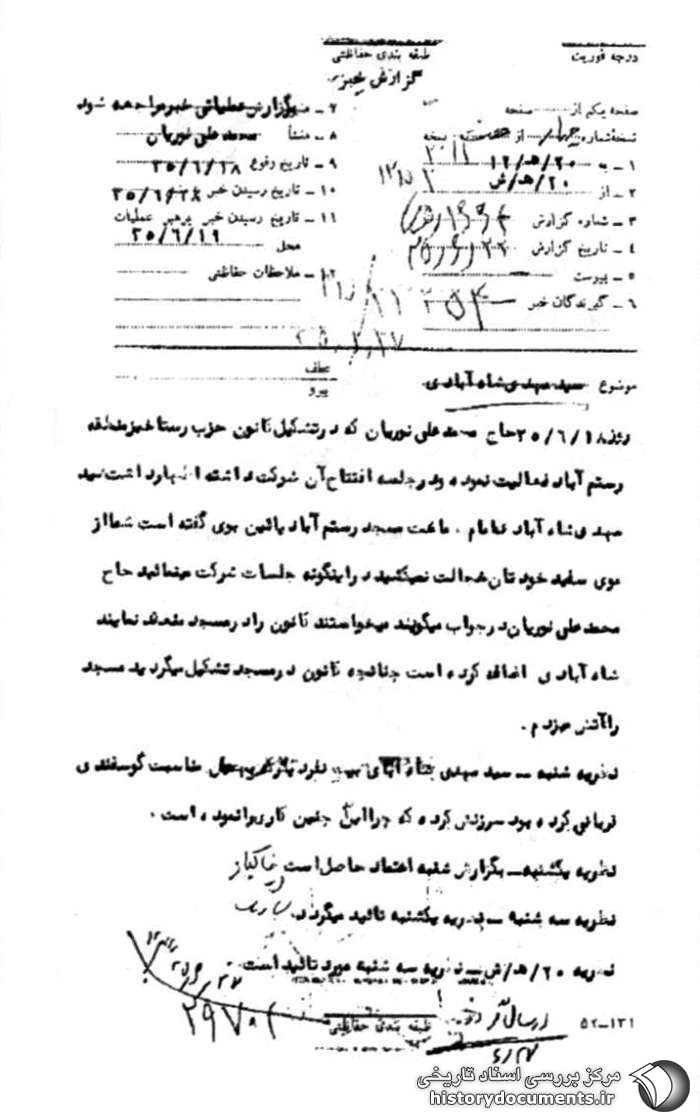 درجه فوریت
طبقه بندی حفاظتی
گزارش خبر
صفحه یکم از صفحه
نسخه شماره چهار از هفت نسخه
۱ – به ۲۰/هـ/۱۲
۲ – از ۲۰/هـ/ش
۳ – شماره گزارش
۴ – تاریخ گزارش
۵ – پیوست
۶ – گیرندگان خبر
۷ – بگزارش عملیاتی خبر مراجعه شود
۸ – منشأ محمد علی نوریان
۹ – تاریخ وقوع ۳۵/۶/۱۸
۱۰ – تاریخ رسیدن خبر ۳۵/۶/۱۸
۱۱ – تاریخ رسیدن خبر برهبر عملیات
محل ۳۵/۶/۱۹
۱۲ – ملاحظات حفاظتی
موضوع سید مهدی شاه آبادی
عطف
پیرو
روز ۳۵/۶/۱۸ حاج محمد علی نوریان که در تشکیل کانون حزب رستاخیز منطقه
رستم آباد فعالیت نموده و در جلسه افتتاح آن شرکت داشته اظهار داشت سید
مهدی شاه آباد امام . ماعت مسجد رستم آباد پائین بوی گفته است شما از
موی سفید خودتان خجالت نمیکشید در اینگونه جلسات شرکت مینمائید حاج
محمد علی نوریان در جواب میگویند میخواستند کانون را در مسجد منعقد نمایند
شاه آبادی اضافه کرده است چنانچه کانون در مسجد تشکیل میگردید مسجد
را آتش میزدم .
نظریه شنبه – سید مهدی شاه آبادی نفر که مناسبت گوسفندی
قربانی کرده بود سرزنش کرده که چرا این چنین کاری را نموده است .
نظریه یکشنبه – بگزارش شنبه اعتماد حاصل است
نظریه سه شنبه – نظریه یکشنبه تائید میگردد.
نظریه ۲۰/هـ/ش – نظریه سه شنبه مورد تائید است .
طبقه بندی حفاظتی
۵۲–۱۳۱
۶/۲۷
مرکز بررسی اسناد تاریخی
historydocuments.ir